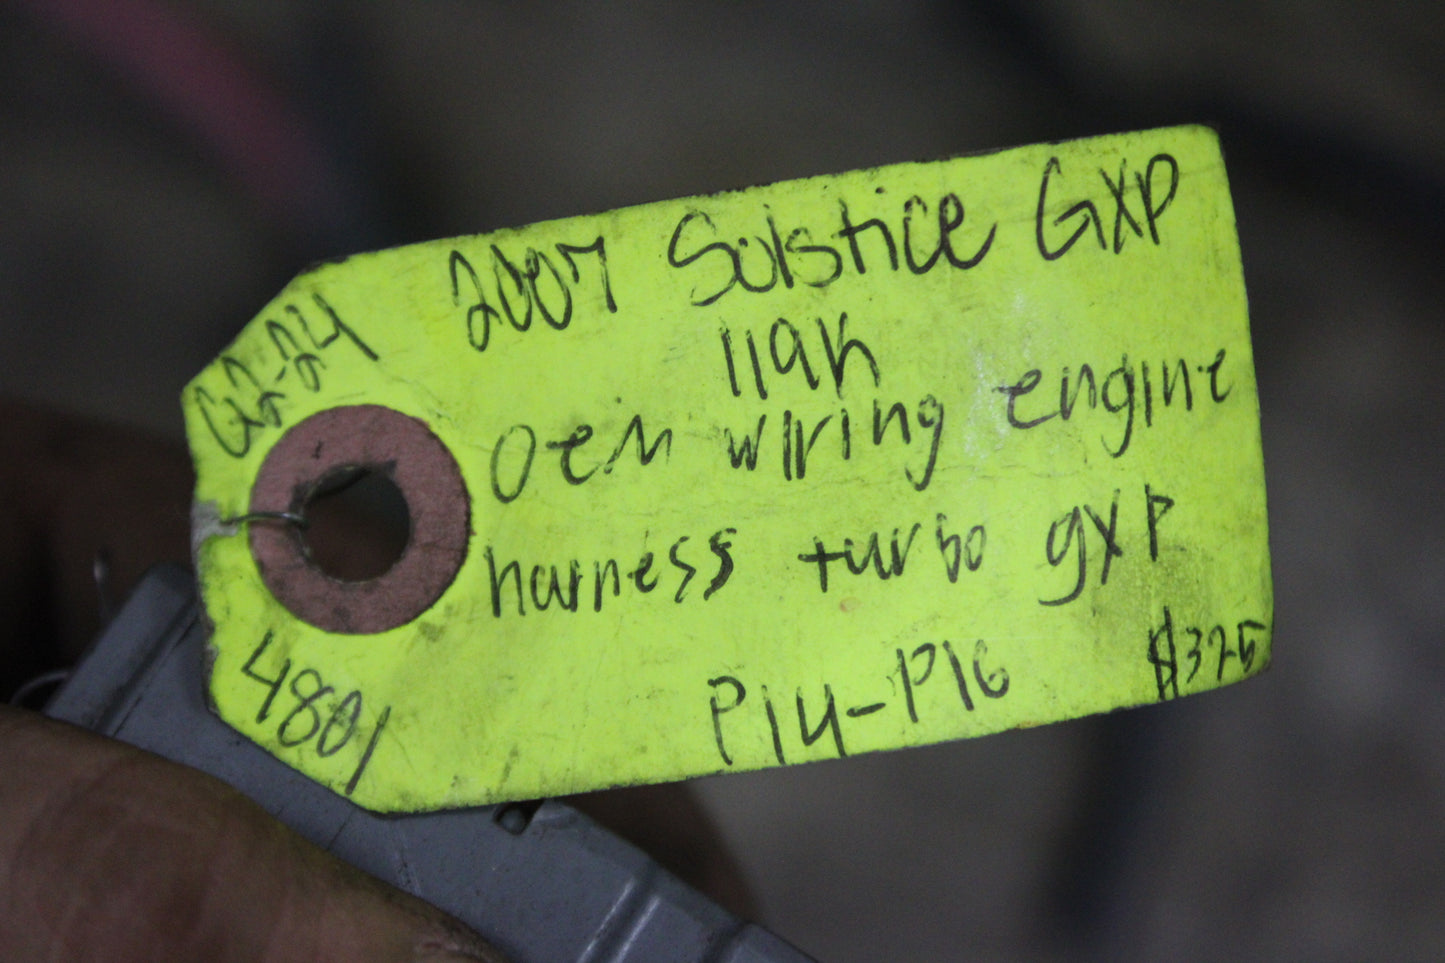 2007 Solstice GXP
119K
oem wiring engine
harness turbo gxp
P14-P16
$325
4801